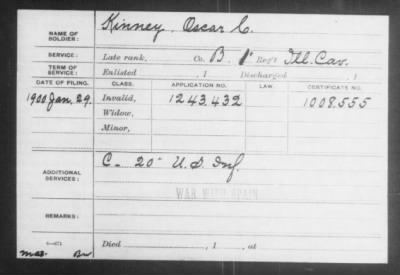 NAME OF SOLDIER: Kinney, Oscar C.
SERVICE: Late rank, Co. B, 1" Reg't Ill. Cav.
TERM OF SERVICE: Enlisted , 1 Discharged , 1
DATE OF FILING. CLASS. APPLICATION NO. LAW. CERTIFICATE NO.
1900 Jan. 29. Invalid, 1243.432 1008.555
Widow,
Minor,
ADDITIONAL SERVICES: C- 20" U.S. Inf.
WAR WITH SPAIN
REMARKS:
Died , 1 , at